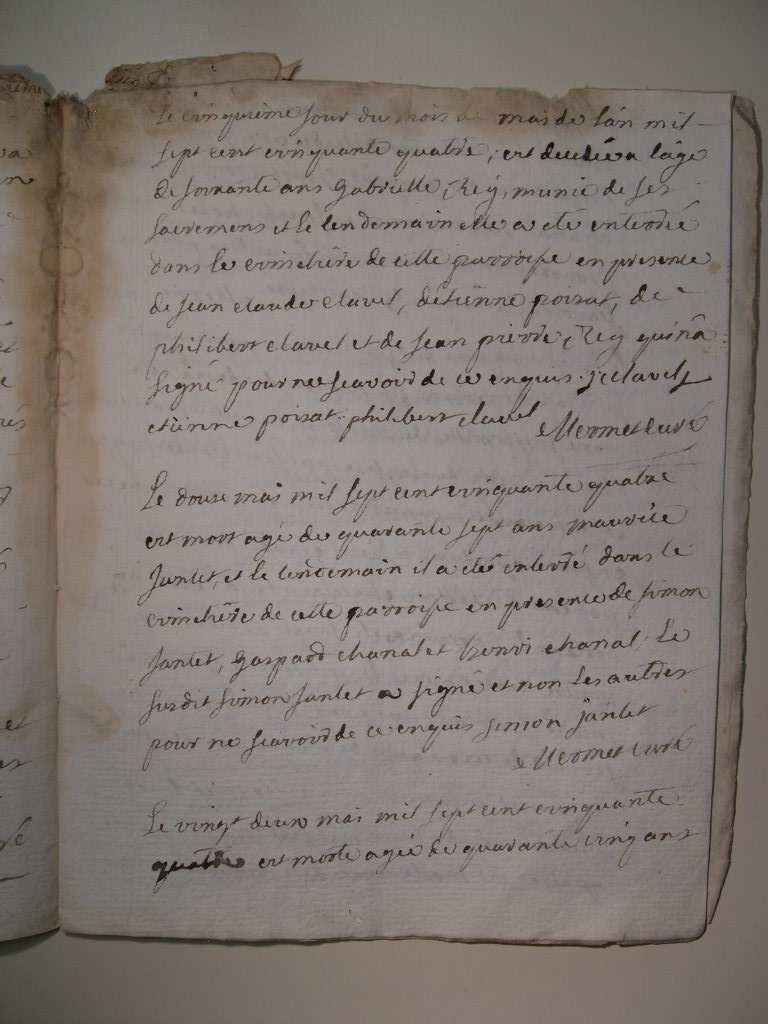 Le cinquieme jour du mois de mai de lan mil
sept cent cinquante quatre, est decedée a lage
de soixante ans Gabrielle Rey, munie de ses
sacremens et le lendemain elle a eté enterrée
dans le cimetière de cette parroisse en presence
de jean claude clavel, detienne poizat, de
philibert clavel et de jean pierre Rey qui na
signé pour ne scavoir de ce enquis. j: c clavel
etienne poizat. philibert clavel Mermet curé
Le douze mai mil sept cent cinquante quatre
est mort agé de quarante sept ans maurice
Janlet, et le lendemain il a eté enterré dans le
cimetière de cette parroisse en presence de simon
Janlet, Gaspard chanal et henri chanal. Le
susdit simon Janlet a signé et non les autres
pour ne scavoir de ce enquis simon janlet
Mermet curé
Le vingt deux mai mil sept cent cinquante
quatre est morte agée de quarante cinq ans